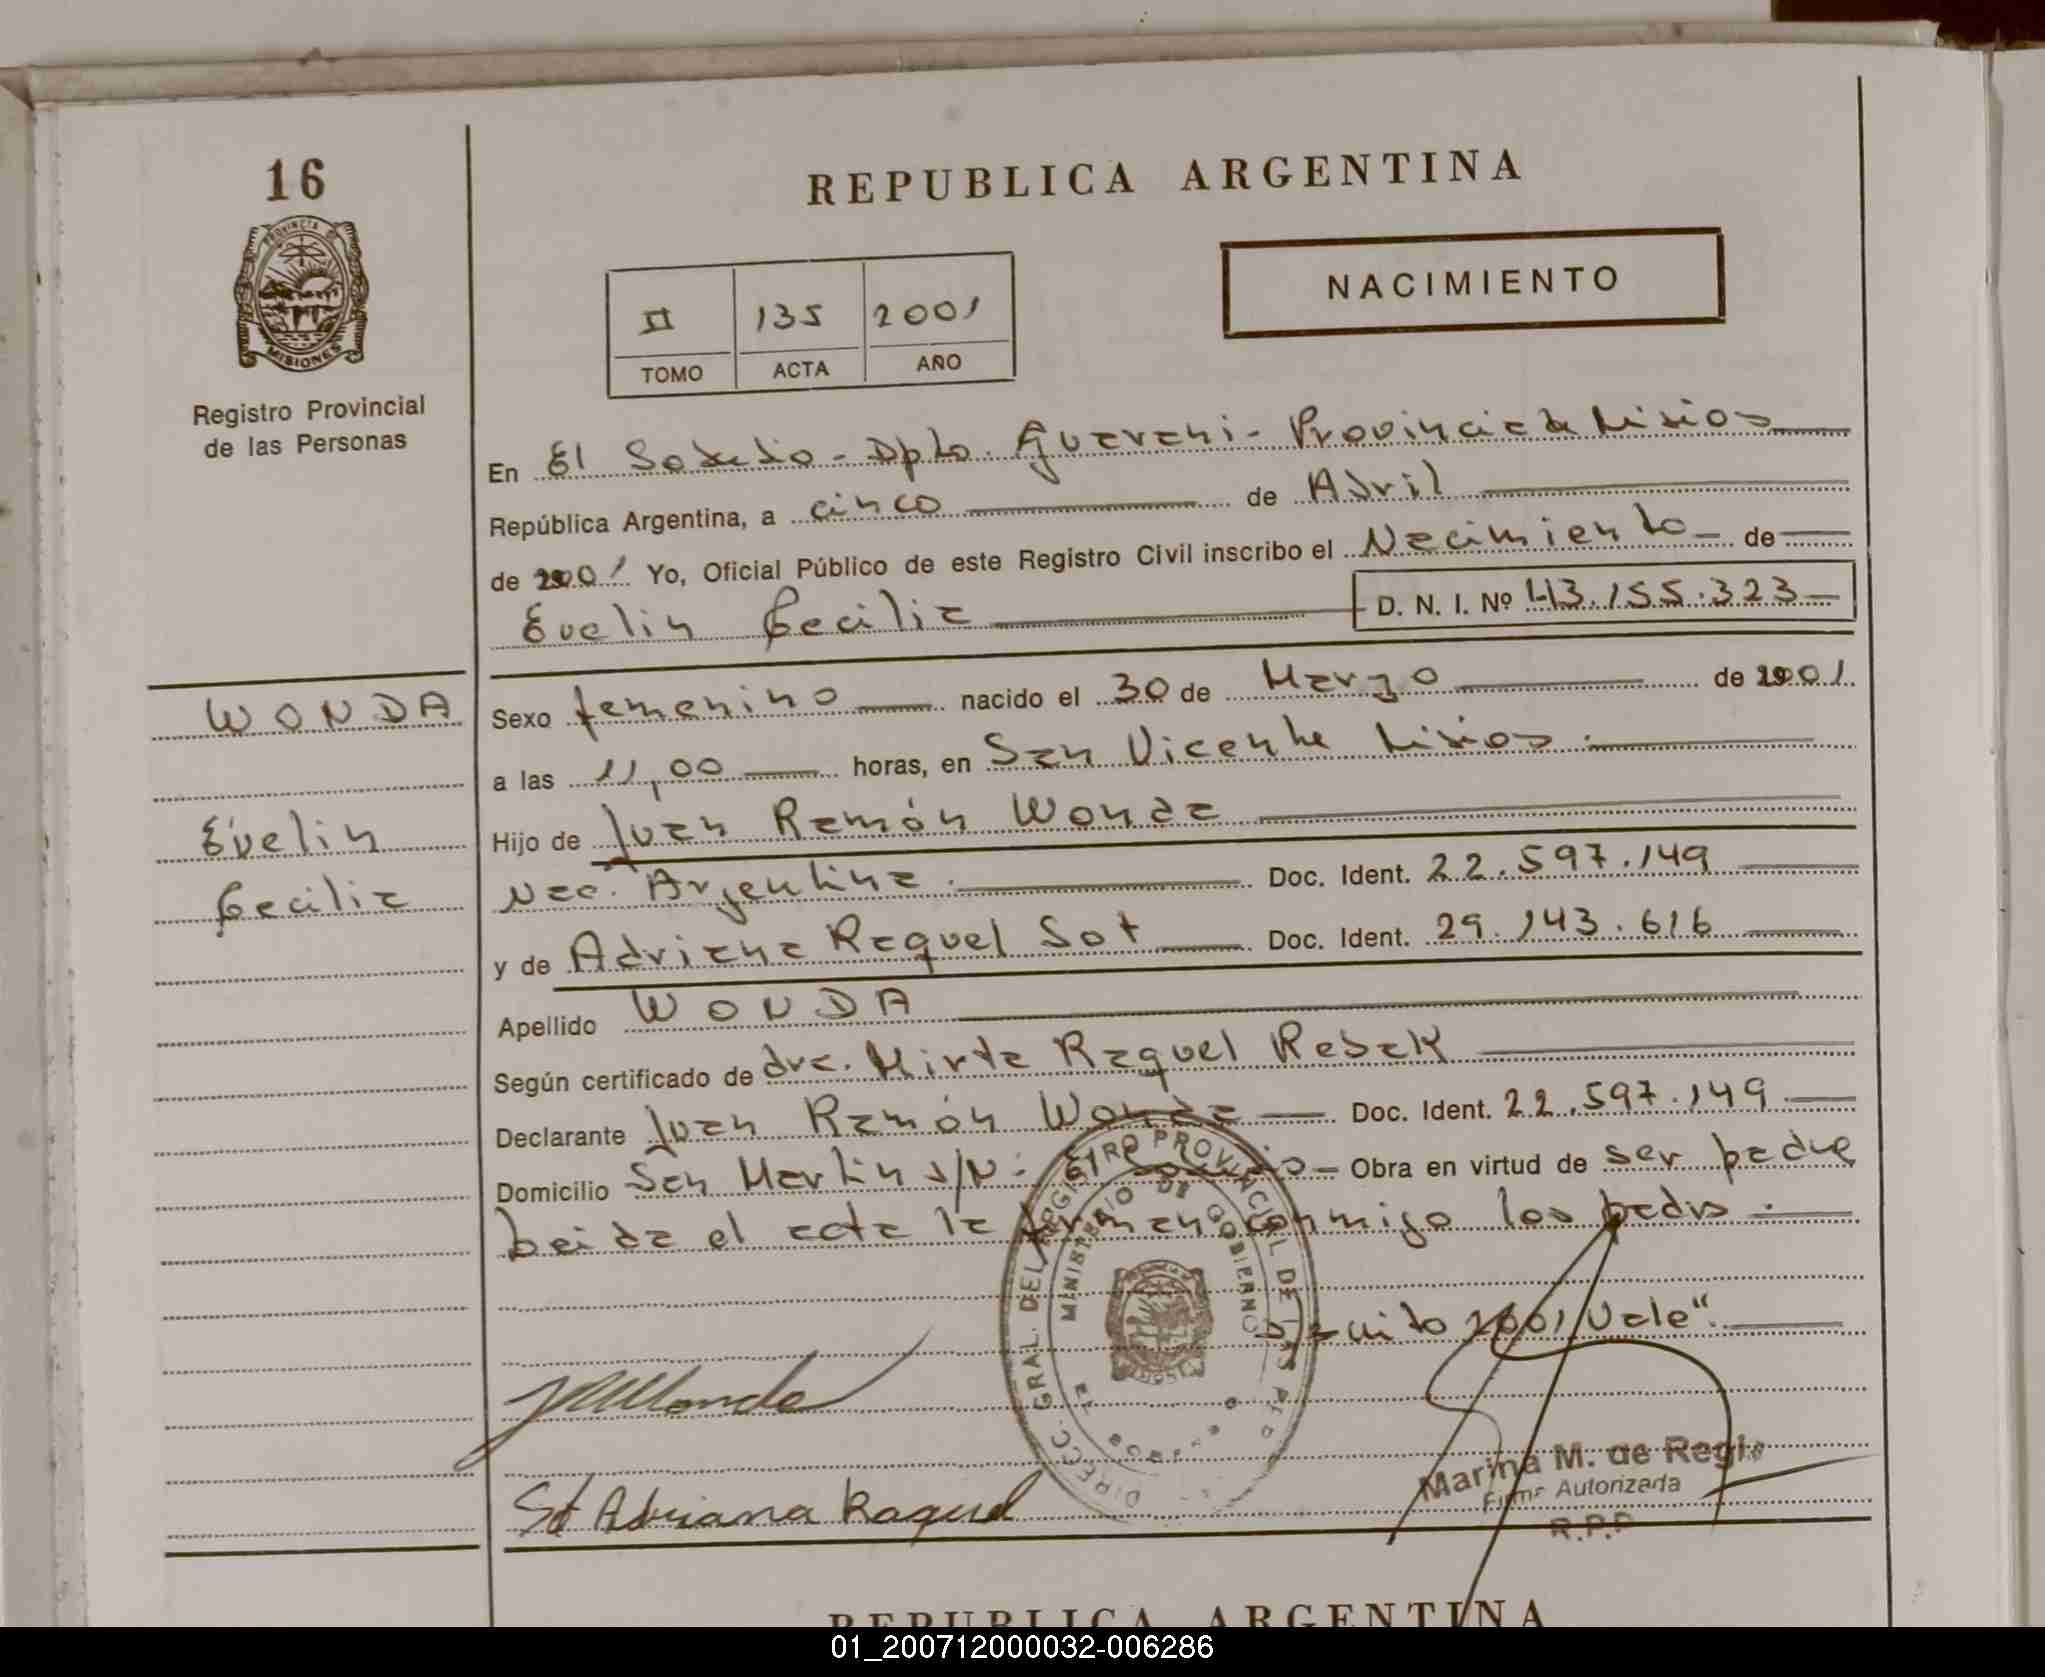 16
REPUBLICA ARGENTINA
PROVINCIA DE
MISIONES
Registro Provincial
de las Personas
NACIMIENTO
II 135 2001
TOMO ACTA AÑO
En El Soberbio - Dpto. Guarani - Provincia de Misiones
República Argentina, a cinco de Abril
de 2001 Yo, Oficial Público de este Registro Civil inscribo el Nacimiento de
Evelin Cecilia D. N. I. Nº 43.155.323
WONDA
Evelin
Cecilia
Sexo femenino nacido el 30 de Marzo de 2001
a las 11,00 horas, en San Vicente Misiones.
Hijo de Juan Ramón Wonda
Nac. Argentina. Doc. Ident. 22.597.149
y de Adriana Raquel Sot Doc. Ident. 29.143.616
Apellido WONDA
Según certificado de dra. Mirta Raquel Rebak
Declarante Juan Ramón Wonda Doc. Ident. 22.597.149
Domicilio San Martin s/N: El Soberbio Obra en virtud de ser padre
Leida el acta la firman conmigo los padres.
2001 Vale".
DIRECC. GRAL. DEL REGISTRO PROVINCIAL DE LAS
MINISTERIO DE GOBIERNO
Sot Adriana Raquel
Marina M. de
Firma Autorizada
R.P.P.
REPUBLICA ARGENTINA
01_200712000032-006286